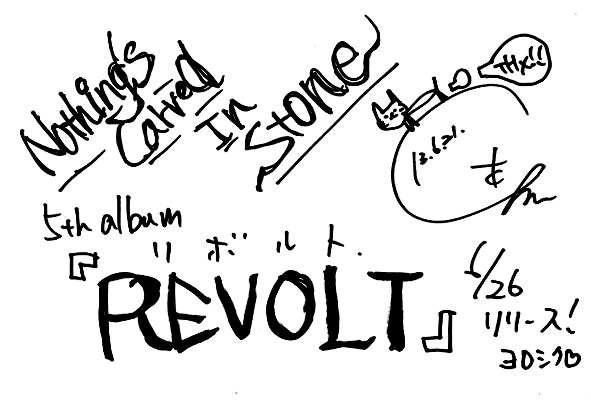 Nothing's
Carved
In
Stone
THX!!
5th album
リボルト.
『REVOLT』
6/26
リリース!
ヨロシク♡